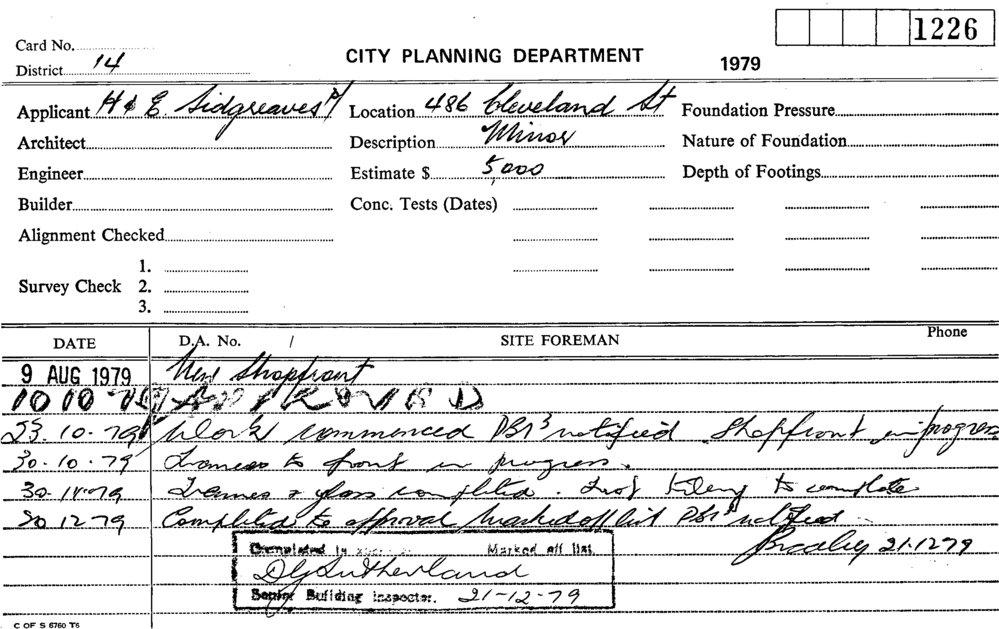 1226
Card No.
CITY PLANNING DEPARTMENT 1979
District 14
Applicant H & E. Sidgreaves P/ Location 486 Cleveland St Foundation Pressure
Architect Description Minor Nature of Foundation
Engineer Estimate $ 5,000 Depth of Footings
Builder Conc. Tests (Dates)
Alignment Checked
1.
Survey Check 2.
3.
DATE D.A. No. / SITE FOREMAN Phone
9 AUG 1979 New Shopfront
10 10 79 APPROVED
23.10.79 Work commenced notified Shopfront in progress
30.10.79 Frames to front in progress.
30.11.79 Frames & glass completed. tiling to complete
20 12 79 Completed to approval Marked off list notified
21.12.79
Completed Marked off list
D G Sutherland
Senior Building Inspector. 21-12-79
C OF S 6760 T6